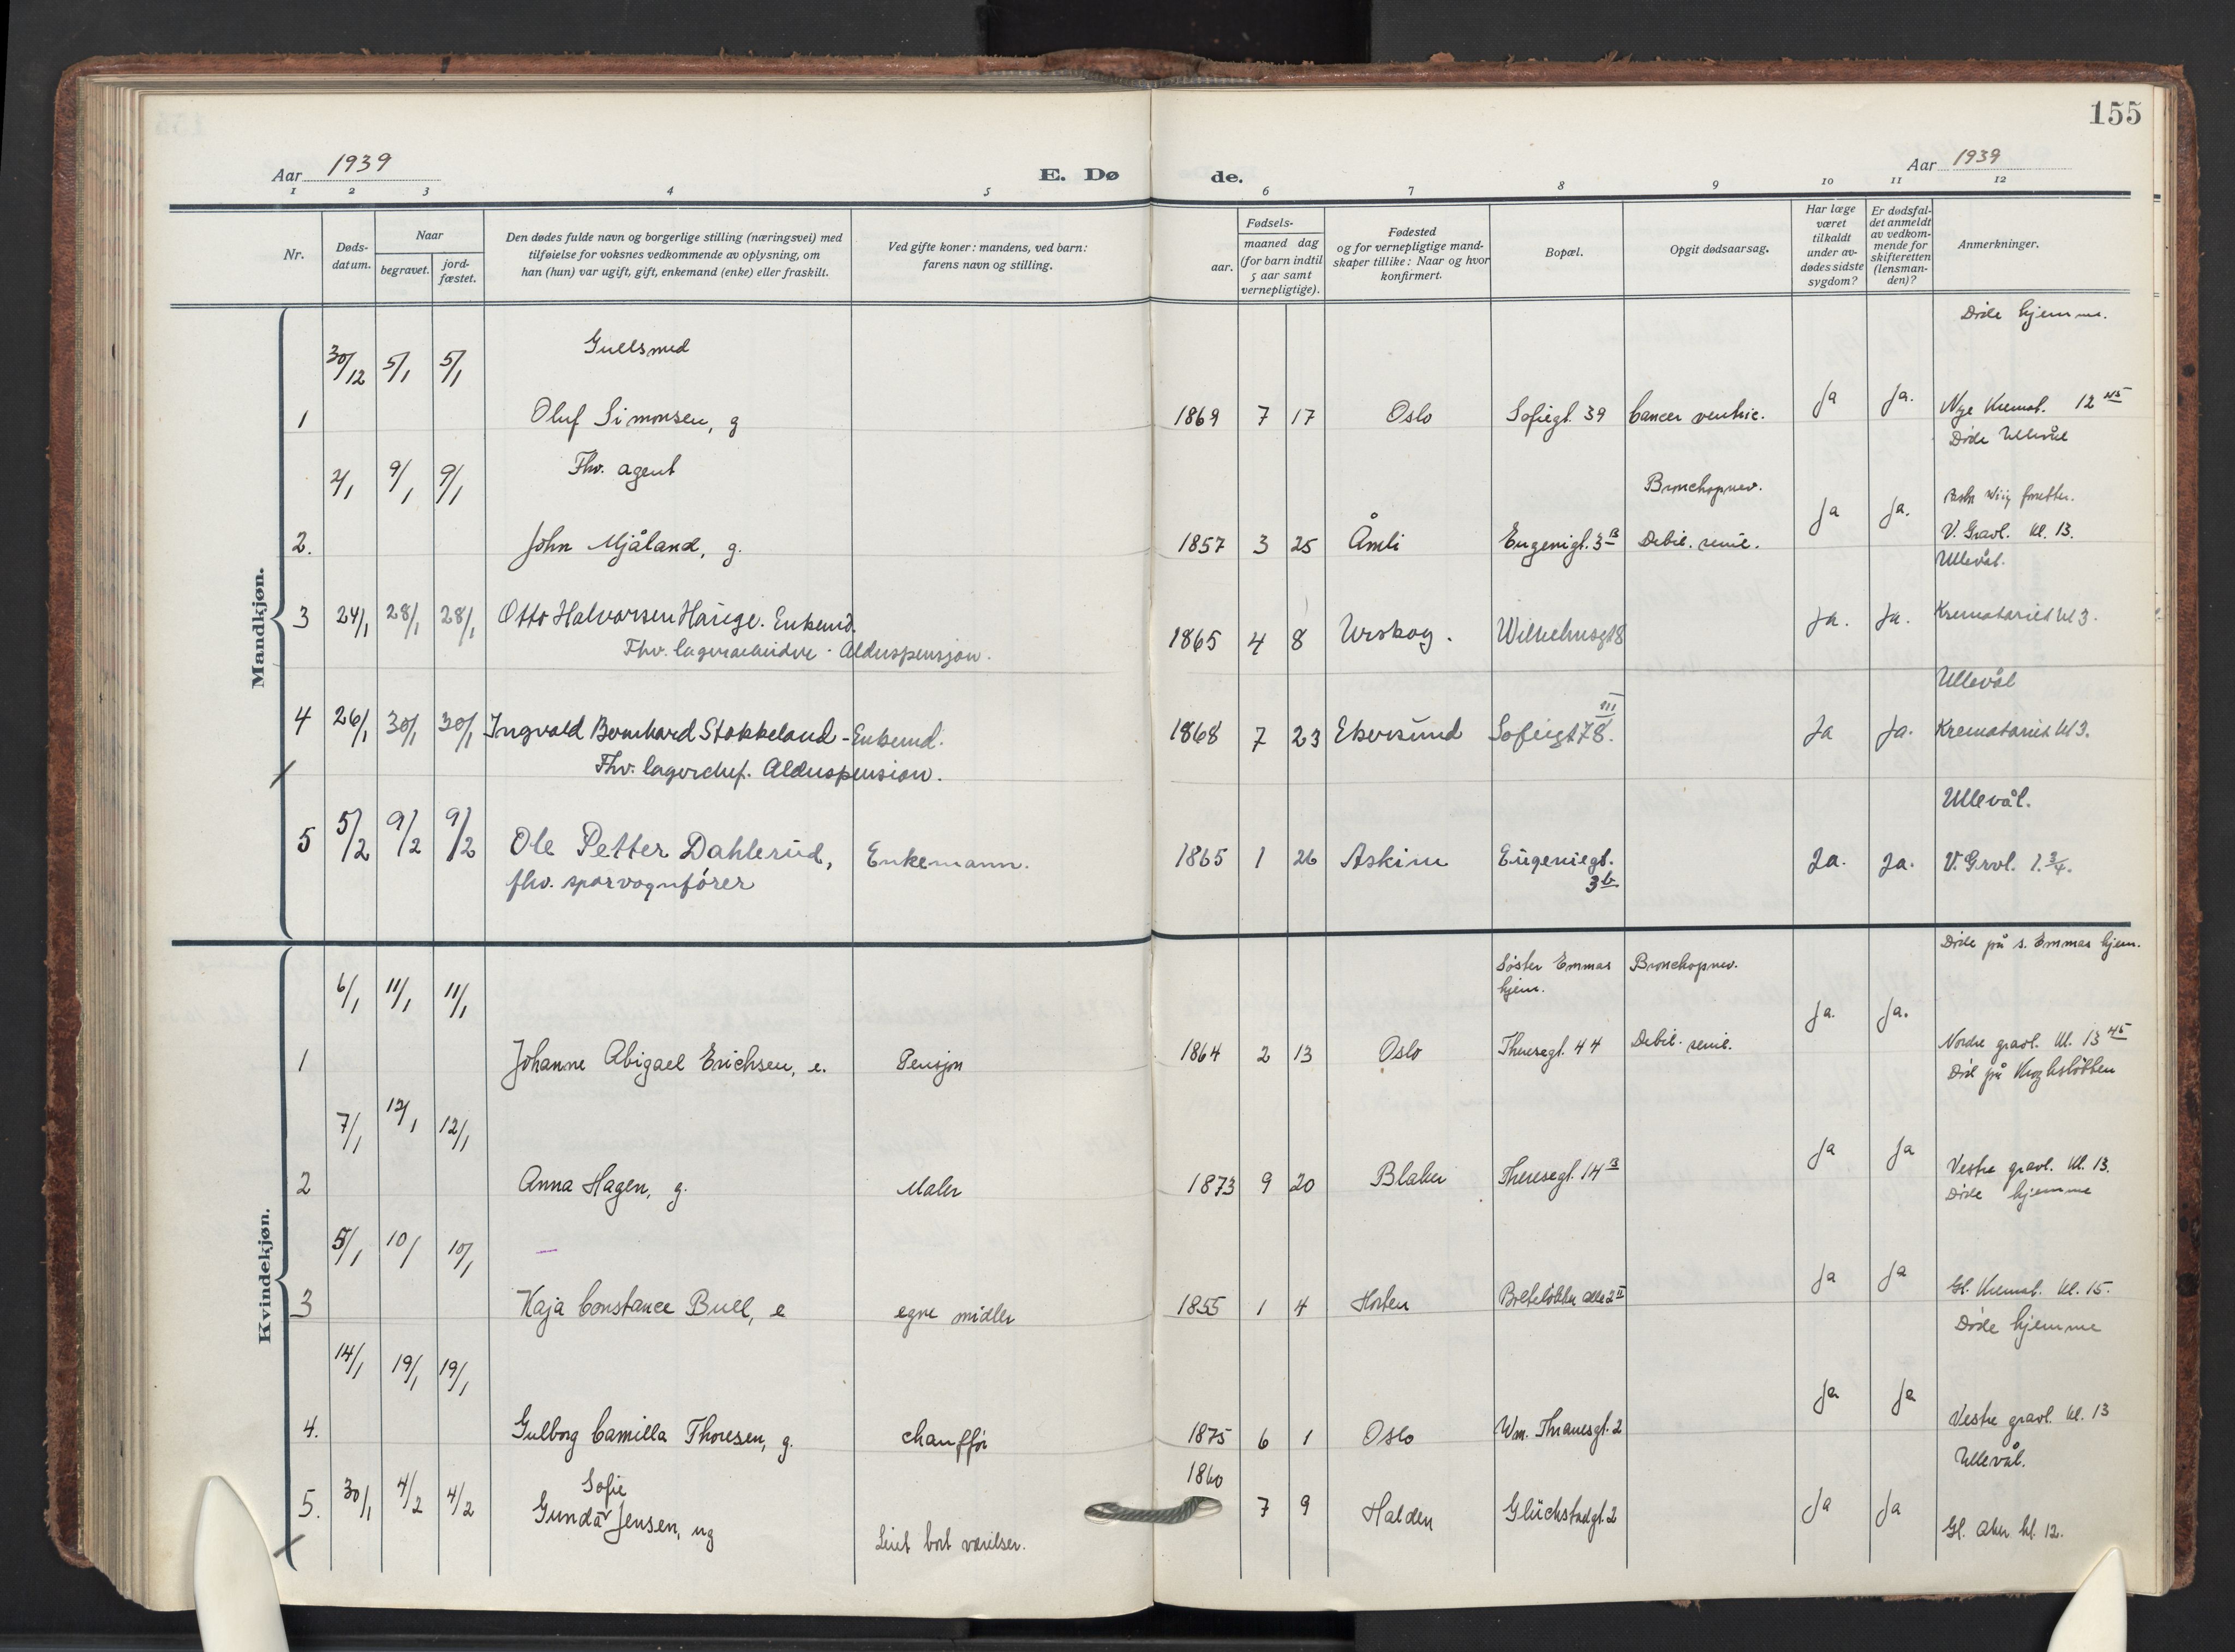 155
Aar 1939
E. Dø de.
Aar 1939
1 2 3 4 5 6 7 8 9 10 11 12
Nr.
Døds-
datum.
Naar
begravet.
jord-
fæstet.
Den dødes fulde navn og borgerlige stilling (næringsvei) med
tilføielse for voksnes vedkommende av oplysning, om
han (hun) var ugift, gift, enkemand (enke) eller fraskilt.
Ved gifte koner: mandens, ved barn:
farens navn og stilling.
Fødsels-
aar.
maaned dag
(for barn indtil
5 aar samt
vernepligtige).
Fødested
og for vernepligtige mand-
skaper tillike: Naar og hvor
konfirmert.
Bopæl.
Opgit dødsaarsag.
Har læge
været
tilkaldt
under av-
dødes sidste
sygdom?
Er dødsfal-
det anmeldt
av vedkom-
mende for
skifteretten
(lensman-
den)?
Anmerkninger.
Mandkjøn.
Døde hjemme.
30/12 5/1 5/1 Gullsmed
1 Oluf Simonsen, g 1869 7 17 Oslo Sofiegt. 39 Cancer ventric. Ja Ja. Nye Kremat. 12 45
Døde Ullevål
2/1 9/1 9/1 Fhv. agent Bronchopnev.
2. John Mjåland, g. 1857 3 25 Åmli Eugenigt. 3 B Debil. senil. Ja Ja. V. Gravl. kl. 13.
Ullevål.
3 24/1 28/1 28/1 Otto Halvorsen Hauge. Enkemd. 1865 4 8 Urskog. Wilhelmsgt 8 Ja. Ja. Krematoriet kl 3.
Fhv. lagerarbeider. Alderspensjon.
Ullevål
4 26/1 30/1 30/1 Ingvald Bernhard Stokkeland - Enkemd. 1868 7 23 Ekersund Sofiegt 78. III Ja Ja. Krematoriet kl 3.
Fhv. lagerchef. Alderspension.
Ullevål.
5 5/2 9/2 9/2 Ole Petter Dahlerud, Enkemann. 1865 1 26 Askim Eugeniegt. 3b Ja. Ja. V. Grvl. 1.3/4.
fhv. sporvognfører
Kvindekjøn.
Døde på s. Emmas hjem.
6/1 11/1 11/1 Søster Emmas hjem. Bronchopnev.
1 Johanne Abigael Erichsen, e. Pensjon 1864 2 13 Oslo Theresegt. 44 Debil. senil. Ja. Ja. Nordre gravl. kl. 13 45
Død på Kroghstøtten
7/1 12/1 12/1
2 Anna Hagen, g. Maler 1873 9 20 Blaker Theresegt. 14 B Ja Ja Vestre gravl. kl. 13.
Døde hjemme
5/1 10/ 10/1
3 Kaja Constance Bull, e egne midler 1855 1 4 Horten Bolteløkka alle 2 II Ja Ja Gl. Kremat. kl. 15.
Døde hjemme
14/1 19/1 19/1
4. Gulborg Camilla Thoresen, g. chauffør 1875 6 1 Oslo Wm. Thranesgt. 2 Ja Ja Vestre gravl. kl. 13
Ullevål.
5. 30/1 4/2 4/2 Gunda Sofie Jensen, ug Leiet bort værelser. 1860 7 9 Halden Glückstadgt. 2 Ja Ja Gl. Aker kl. 12.